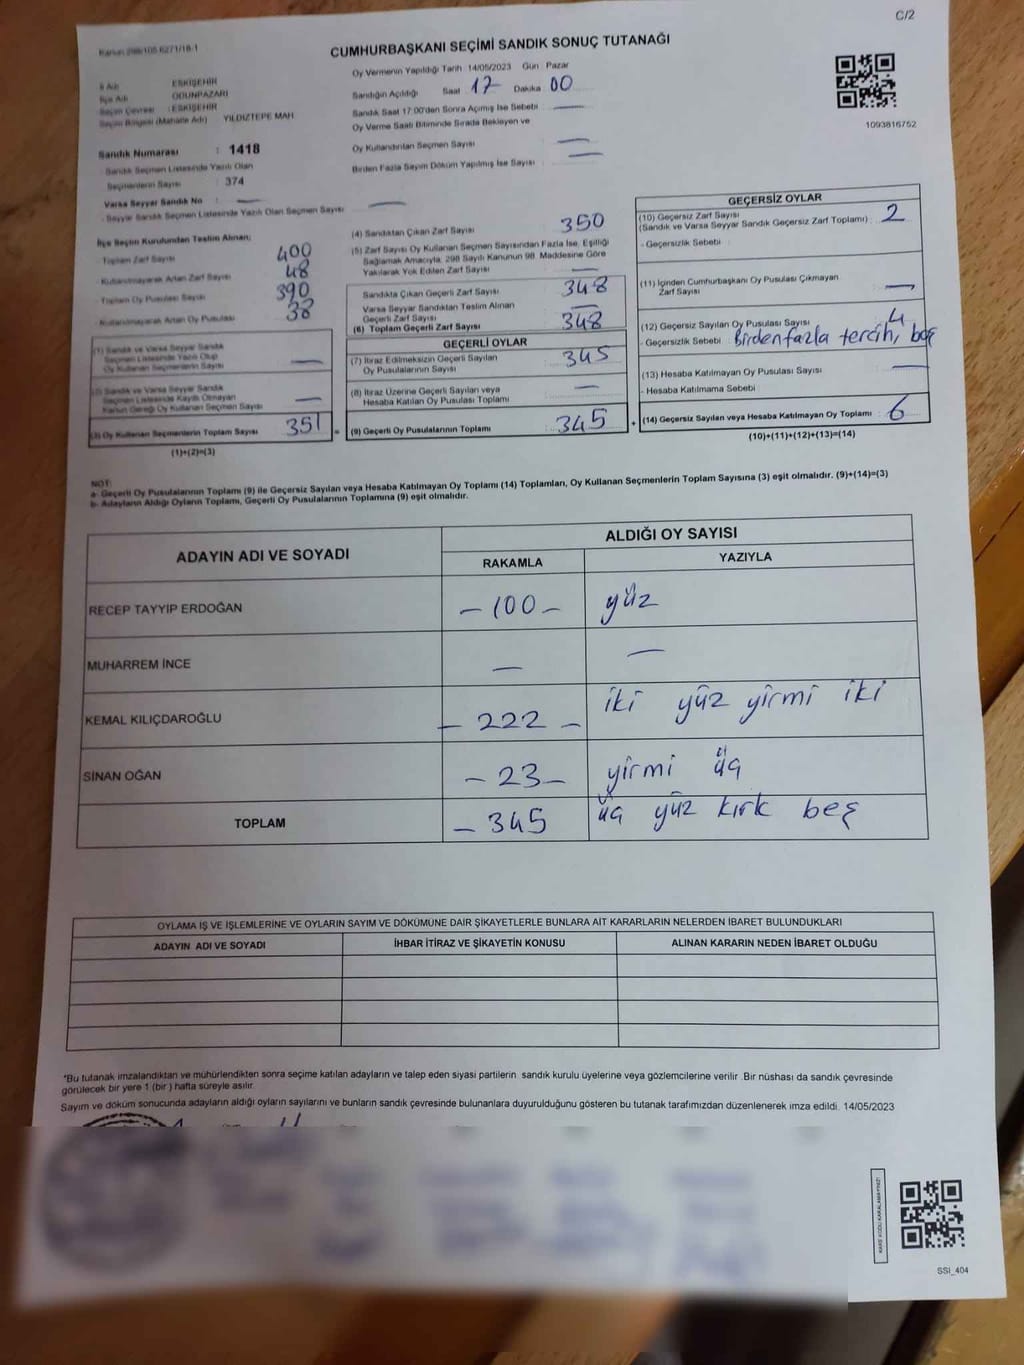 C/2
Kanun 298/105 6271/18-1
CUMHURBAŞKANI SEÇİMİ SANDIK SONUÇ TUTANAĞI
İl Adı ESKİŞEHİR
İlçe Adı ODUNPAZARI
Seçim Çevresi : ESKİŞEHİR
Seçim Bölgesi (Mahalle Adı) YILDIZTEPE MAH
Sandık Numarası : 1418
Sandık Seçmen Listesinde Yazılı Olan
Seçmenlerin Sayısı : 374
Varsa Seyyar Sandık No : —
- Seyyar Sandık Seçmen Listesinde Yazılı Olan Seçmen Sayısı —
Oy Vermenin Yapıldığı Tarih 14/05/2023 Gün Pazar
Sandığın Açıldığı Saat 17 Dakika 00
Sandık Saat 17:00'den Sonra Açımış İse Sebebi —
Oy Verme Saati Bitiminde Sırada Bekleyen ve
Oy Kullandırılan Seçmen Sayısı —
Birden Fazla Sayım Döküm Yapılmış İse Sayısı —
1093816752
İlçe Seçim Kurulundan Teslim Alınan;
Toplam Zarf Sayısı 400
Kullanılmayarak Artan Zarf Sayısı 48
Toplam Oy Pusulası Sayısı 390
Kullanılmayarak Artan Oy Pusulası 38
(1) Sandık ve Varsa Seyyar Sandık
Seçmen Listesinde Yazılı Olup
Oy Kullanan Seçmenlerin Sayısı —
(2) Sandık ve Varsa Seyyar Sandık
Seçmen Listesinde Kayıtlı Olmayan
Kanun Gereği Oy Kullanan Seçmen Sayısı —
(3) Oy Kullanan Seçmenlerin Toplam Sayısı 351 =
(1)+(2)=(3)
(4) Sandıktan Çıkan Zarf Sayısı 350
(5) Zarf Sayısı Oy Kullanan Seçmen Sayısından Fazla İse, Eşitliği
Sağlamak Amacıyla, 298 Sayılı Kanunun 98. Maddesine Göre
Yakılarak Yok Edilen Zarf Sayısı —
Sandıkta Çıkan Geçerli Zarf Sayısı 348
Varsa Seyyar Sandıktan Teslim Alınan
Geçerli Zarf Sayısı —
(6) Toplam Geçerli Zarf Sayısı 348
GEÇERLİ OYLAR
(7) İtiraz Edilmeksizin Geçerli Sayılan
Oy Pusulalarının Sayısı 345
(8) İtiraz Üzerine Geçerli Sayılan veya
Hesaba Katılan Oy Pusulası Toplamı —
(9) Geçerli Oy Pusulalarının Toplamı 345 +
GEÇERSİZ OYLAR
(10) Geçersiz Zarf Sayısı
(Sandık ve Varsa Seyyar Sandık Geçersiz Zarf Toplamı) : 2
- Geçersizlik Sebebi
(11) İçinden Cumhurbaşkanı Oy Pusulası Çıkmayan
Zarf Sayısı —
(12) Geçersiz Sayılan Oy Pusulası Sayısı 4
- Geçersizlik Sebebi Birden fazla tercih, boş
(13) Hesaba Katılmayan Oy Pusulası Sayısı —
- Hesaba Katılmama Sebebi
(14) Geçersiz Sayılan veya Hesaba Katılmayan Oy Toplamı : 6
(10)+(11)+(12)+(13)=(14)
NOT:
a- Geçerli Oy Pusulalarının Toplamı (9) ile Geçersiz Sayılan veya Hesaba Katılmayan Oy Toplamı (14) Toplamları, Oy Kullanan Seçmenlerin Toplam Sayısına (3) eşit olmalıdır. (9)+(14)=(3)
b- Adayların Aldığı Oyların Toplamı, Geçerli Oy Pusulalarının Toplamına (9) eşit olmalıdır.
ADAYIN ADI VE SOYADI ALDIĞI OY SAYISI
RAKAMLA YAZIYLA
RECEP TAYYİP ERDOĞAN – 100 – yüz
MUHARREM İNCE — —
KEMAL KILIÇDAROĞLU – 222 – iki yüz yirmi iki
SİNAN OĞAN – 23 – yirmi üç
TOPLAM – 345 üç yüz kırk beş
OYLAMA İŞ VE İŞLEMLERİNE VE OYLARIN SAYIM VE DÖKÜMÜNE DAİR ŞİKAYETLERLE BUNLARA AİT KARARLARIN NELERDEN İBARET BULUNDUKLARI
ADAYIN ADI VE SOYADI İHBAR İTİRAZ VE ŞİKAYETİN KONUSU ALINAN KARARIN NEDEN İBARET OLDUĞU
*Bu tutanak imzalandıktan ve mühürlendikten sonra seçime katılan adayların ve talep eden siyasi partilerin sandık kurulu üyelerine veya gözlemcilerine verilir. Bir nüshası da sandık çevresinde
görülecek bir yere 1 (bir) hafta süreyle asılır.
Sayım ve döküm sonucunda adayların aldığı oyların sayılarını ve bunların sandık çevresinde bulunanlara duyurulduğunu gösteren bu tutanak tarafımızdan düzenlenerek imza edildi. 14/05/2023
KARE KODU KARALAMAYINIZ!
SSI_404